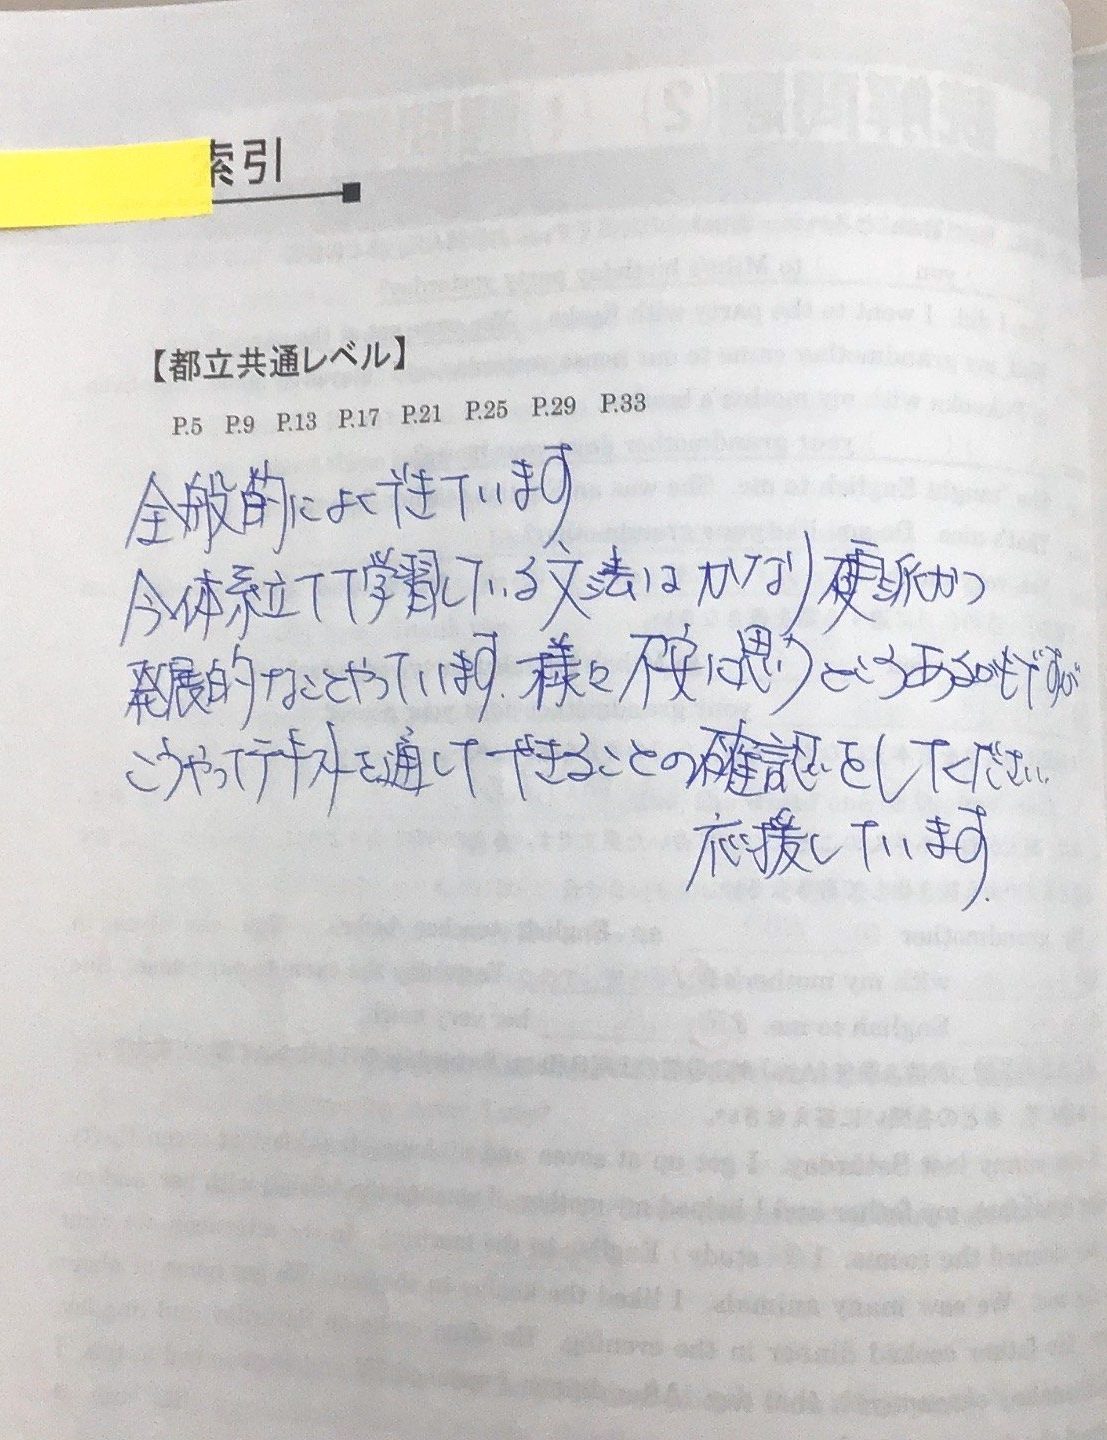 索引
【都立共通レベル】
P.5 P.9 P.13 P.17 P.21 P.25 P.29 P.33
全般的によくできています
今体系立てて学習している文法はかなり硬派かつ
発展的なことやっています。様々不安に思うところあるかもですが
こうやってテキストを通してできることの確認をしてください。
応援しています。